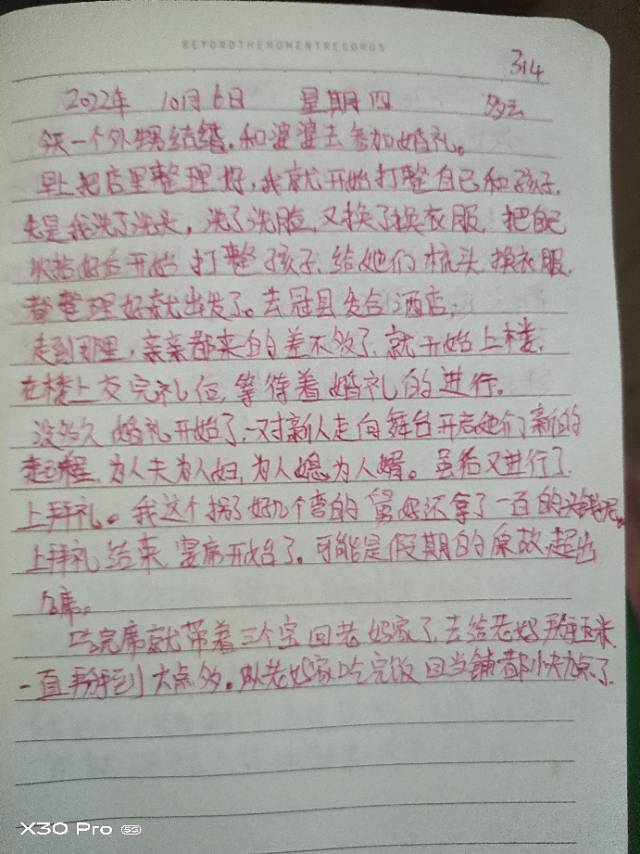 BEYONDTHEMOMENTRECORDS
314
2022年 10月6日 星期四 多云
今天一个外甥结婚。和婆婆去参加婚礼。
早上把店里整理好，我就开始打整自己和孩子，
先是我洗了洗头，洗了洗脸，又换了换衣服，把自己
收拾好后开始打整孩子，给她们梳头，换衣服，
都整理好就出发了。去冠县 合酒店，
走到那里，亲亲都来的差不多了，就开始上楼，
在楼上交完礼 ，等待着婚礼的进行。
没多久婚礼开始了，一对新人走向舞台开启她们新的
起程，为人夫为人妇，为人媳为人婿。最后又进行了
上拜礼。我这个拐了好几个弯的舅妈还拿了一百的 呢。
上拜礼结束，宴席开始了。可能是假期的原故，超出
几席。
吃完席就带着三个宝回老妈家了，去给老妈掰玉米
一直掰到六点多。从老妈家吃完饭回当铺都小快九点了。
X30 Pro 5G